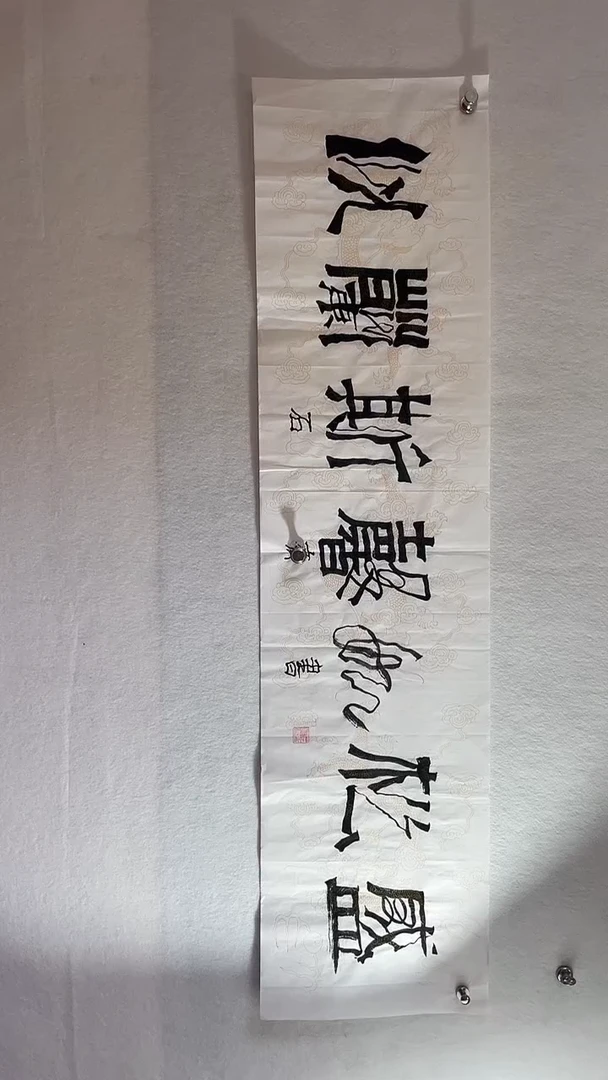 似蘭斯馨如松盛
石
書